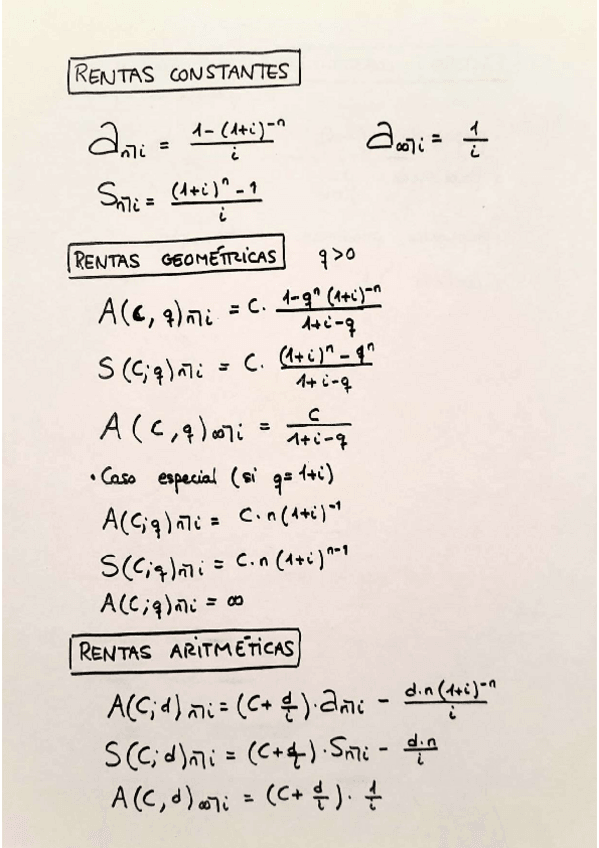 RENTAS CONSTANTES
a n⌉i = 1-(1+i)^-n / i    a ∞⌉i = 1 / i
S n⌉i = (1+i)^n - 1 / i
RENTAS GEOMÉTRICAS   q>0
A(C, q) n⌉i = C· 1-q^n (1+i)^-n / 1+i-q
S(C;q) n⌉i = C· (1+i)^n - q^n / 1+i-q
A(C,q) ∞⌉i = C / 1+i-q
· Caso especial (si q=1+i)
A(C;q) n⌉i = C·n(1+i)^-1
S(C;q) n⌉i = C·n(1+i)^n-1
A(C;q) n⌉i = ∞
RENTAS ARITMÉTICAS
A(C;d) n⌉i = (C+ d/i)· a n⌉i - d·n(1+i)^-n / i
S(C;d) n⌉i = (C+ d/i)· S n⌉i - d·n / i
A(C,d) ∞⌉i = (C+ d/i)· 1/i